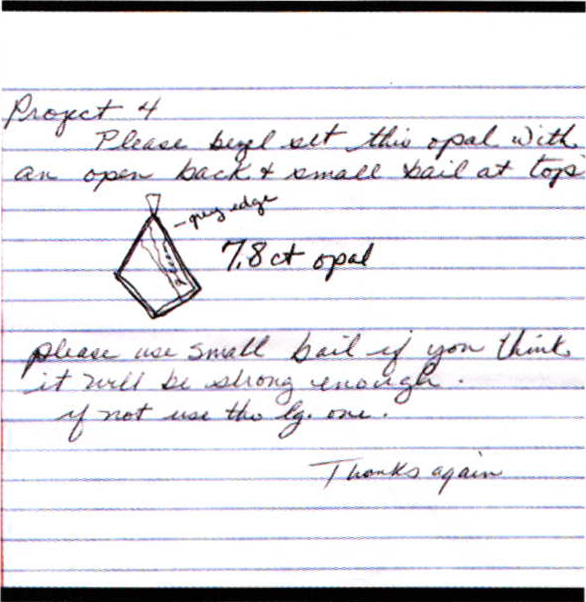 Project 4
Please bezel set this opal with
an open back & small bail at tops
- grey edge
7.8 ct opal
please use small bail if you think
it will be strong enough.
if not use the lg. one.
Thanks again